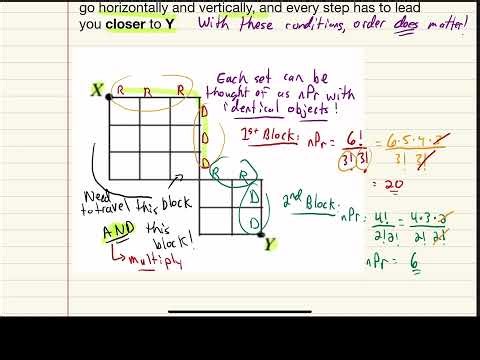 go horizontally and vertically, and every step has to lead
you closer to Y With these conditions, order does matter!
Each set can be
thought of as nPr with
identical objects!
X
R R R
D
D
D
1st Block: nPr = 6! / 3!3! = 6·5·4·3! / 3! 3!
= 20
R R
D
D
Need
to travel this block
AND this
block!
↳ multiply
Y
2nd Block:
nPr: 4! / 2!2! = 4·3·2! / 2! 2!
nPr = 6